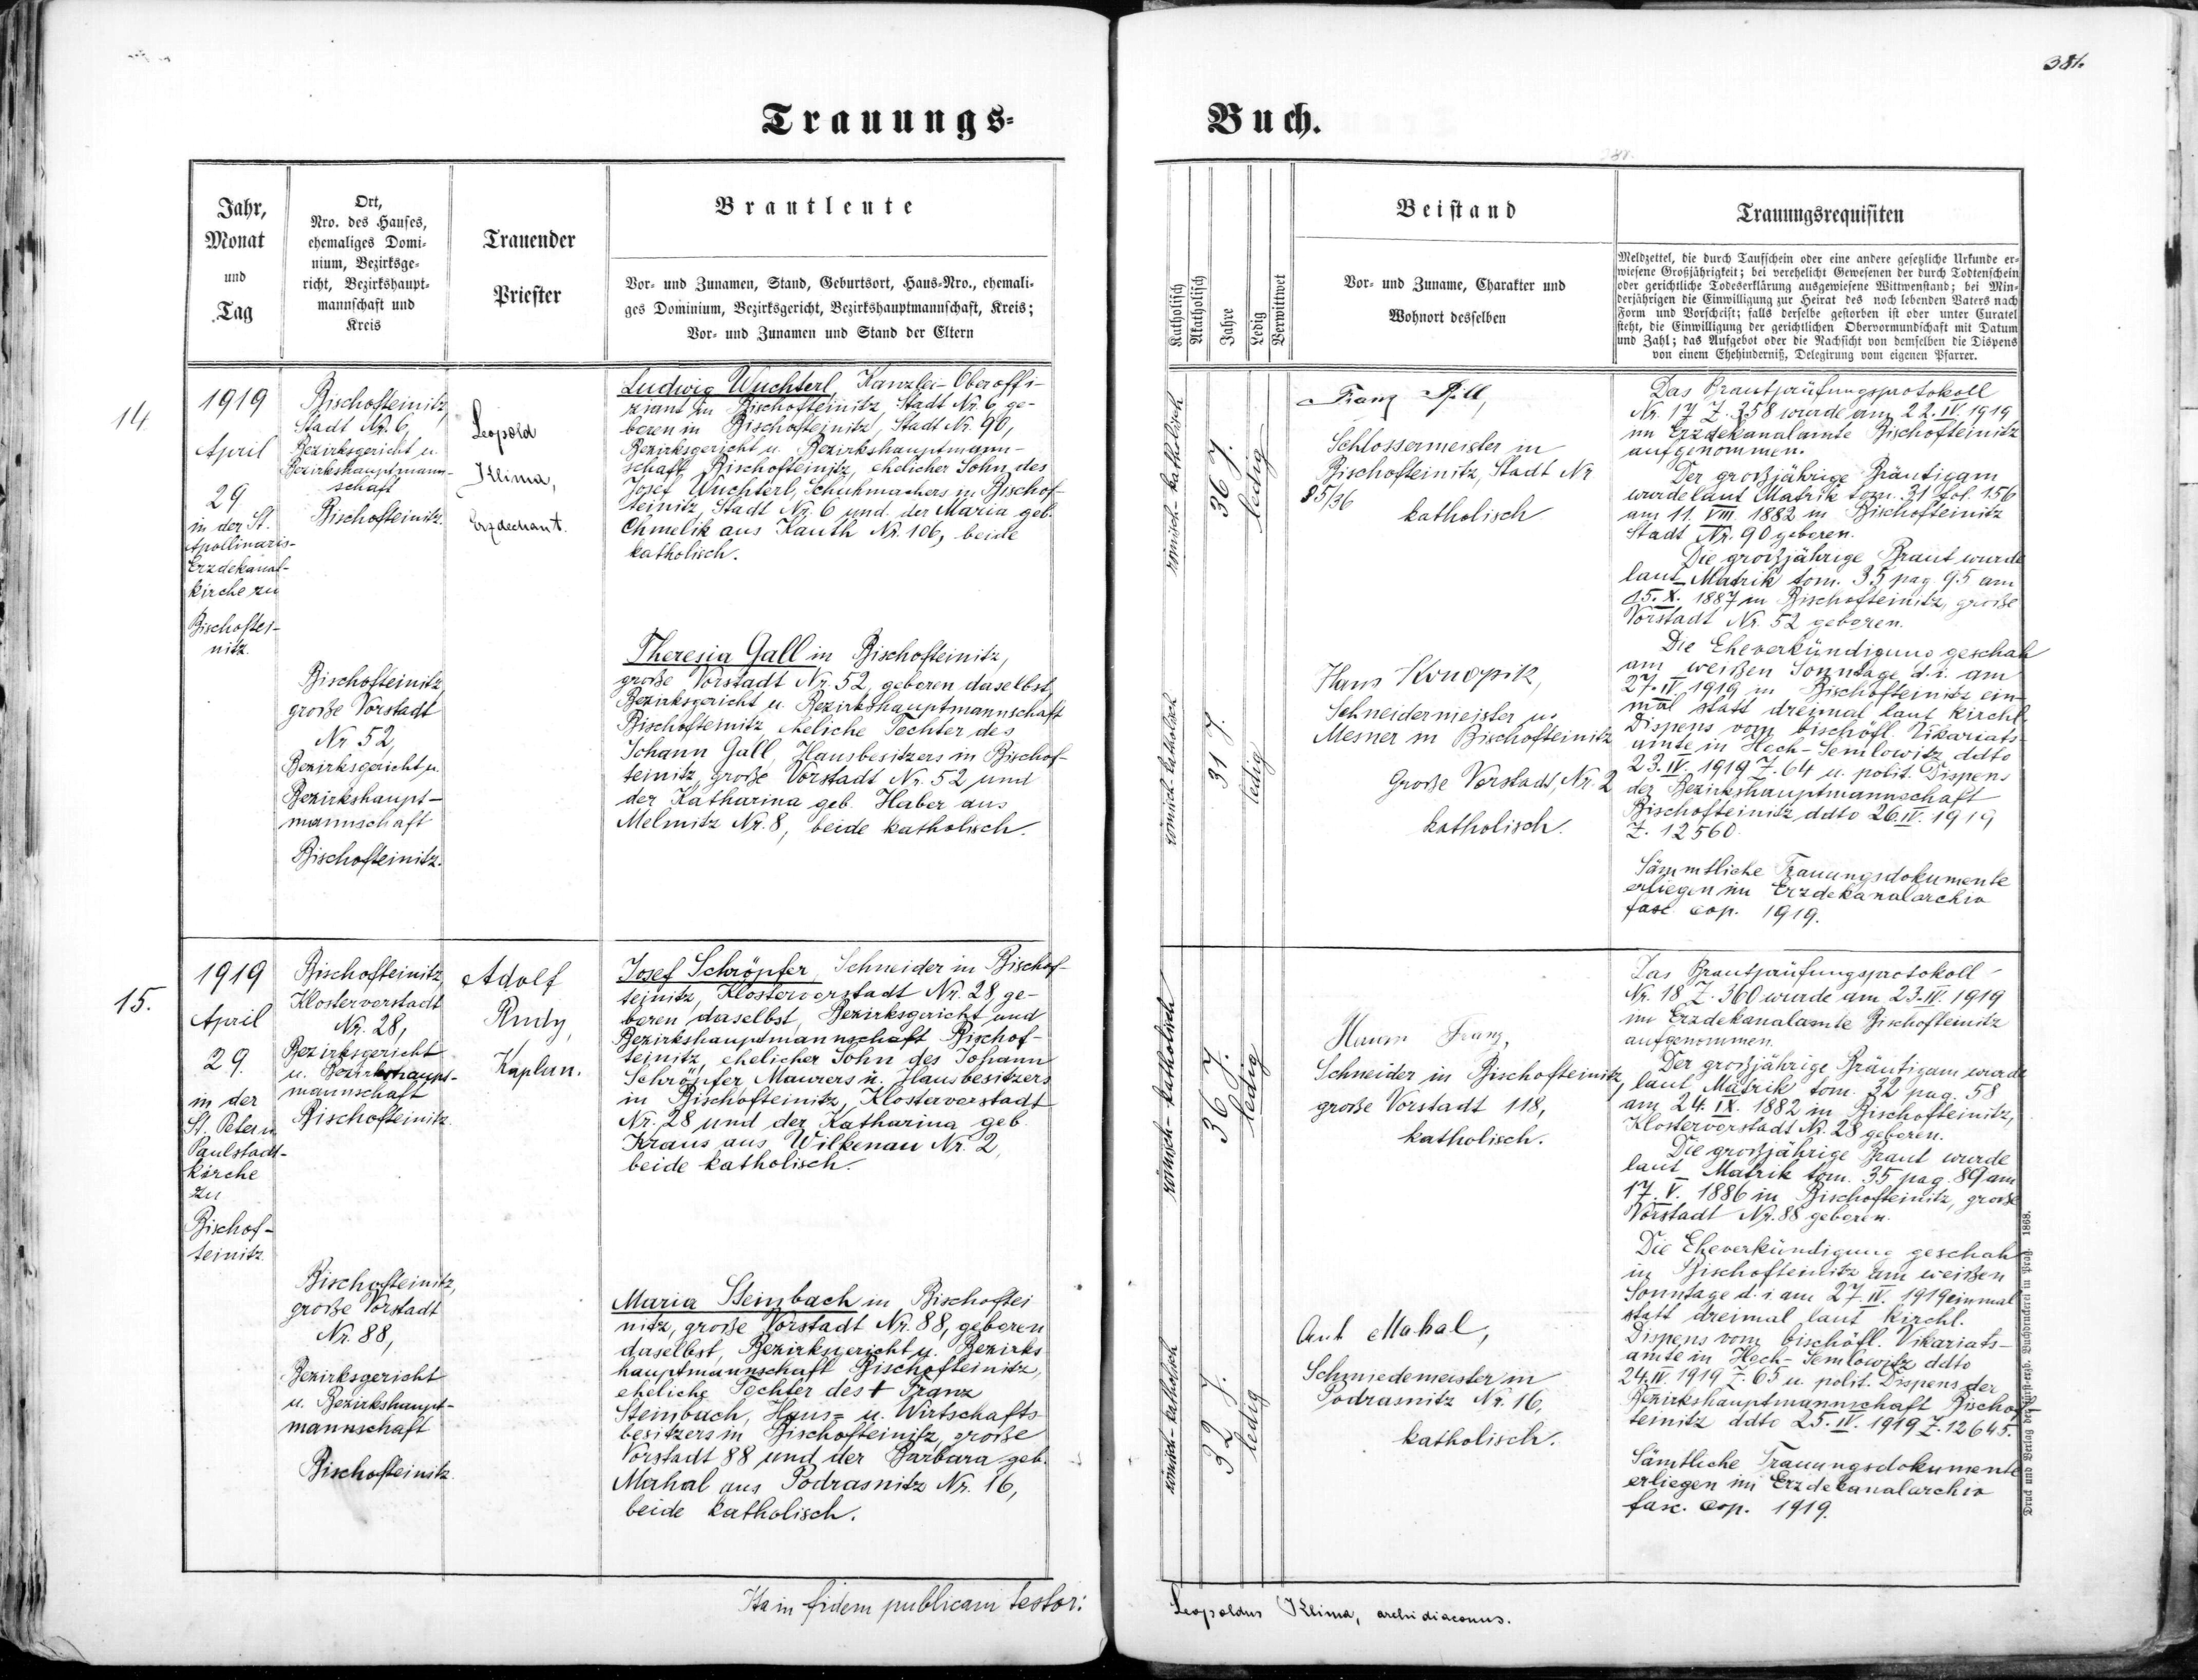 381.
Trauungs-
Buch.
Jahr,
Monat
und
Tag
Ort,
Nro. des Hauses,
ehemaliges Domi-
nium, Bezirksge-
richt, Bezirkshaupt-
mannschaft und
Kreis
Trauender
Priester
Brautleute
Vor- und Zunamen, Stand, Geburtsort, Haus-Nro., ehemali-
ges Dominium, Bezirksgericht, Bezirkshauptmannschaft, Kreis;
Vor- und Zunamen und Stand der Eltern
Katholisch
Akatholisch
Jahre
Ledig
Verwittwet
Beistand
Vor- und Zuname, Charakter und
Wohnort desselben
Trauungsrequisiten
Meldzettel, die durch Taufschein oder eine andere gesetzliche Urkunde er-
wiesene Großjährigkeit; bei verehelicht Gewesenen der durch Todtenschein
oder gerichtliche Todeserklärung ausgewiesene Wittwenstand; bei Min-
derjährigen die Einwilligung zur Heirat des noch lebenden Vaters nach
Form und Vorschrift; falls derselbe gestorben ist oder unter Curatel
steht, die Einwilligung der gerichtlichen Obervormundschaft mit Datum
und Zahl; das Aufgebot oder die Nachsicht von demselben die Dispens
von einem Ehehinderniß, Delegirung vom eigenen Pfarrer.
14
1919
April
29
in der St.
Apollinaris-
Erzdekanal-
kirche zu
Bischoftei-
nitz.
Bischofteinitz,
Stadt Nr. 6,
Bezirksgericht u.
Bezirkshauptmann-
schaft
Bischofteinitz.
Leopold
Klima,
Erzdechant.
Ludwig Wuchterl, Kanzlei-Oberoffi-
ziant in Bischofteinitz, Stadt Nr. 6, ge-
boren in Bischofteinitz, Stadt Nr. 90,
Bezirksgericht u. Bezirkshauptmann-
schaft Bischofteinitz, ehelicher Sohn des
Josef Wuchterl, Schuhmachers in Bischof-
teinitz, Stadt Nr. 6 und der Maria geb.
Chmelik aus Kauth Nr. 106, beide
katholisch.
römisch-katholisch
36 J.
ledig
Franz
Schlossermeister in
Bischofteinitz, Stadt Nr
85/36
katholisch
Das Brautprüfungsprotokoll
Nr. 17 Z. 358 wurde am 22.IV.1919
im Erzdekanalamte Bischofteinitz
aufgenommen.
Der großjährige Bräutigam
wurde laut Matrik tom. 31 fol. 156
am 11. VIII. 1882 in Bischofteinitz
Stadt Nr. 90 geboren.
Die großjährige Braut wurde
laut Matrik tom. 35 pag. 95 am
15. X. 1887 in Bischofteinitz, große
Vorstadt Nr. 52 geboren.
Die Eheverkündigung geschah
am weißen Sonntage d. i. am
27. IV. 1919 in Bischofteinitz ein-
mal statt dreimal laut kirchl.
Dispens vom bischöfl. Vikariats-
amte in Hoch-Semlowitz ddto
23. IV. 1919 Z. 64 u. polit. Dispens
der Bezirkshauptmannschaft
Bischofteinitz ddto 26.IV. 1919
Z. 12560.
Sämmtliche Trauungsdokumente
erliegen im Erzdekanalarchiv
fasc. cop. 1919.
Bischofteinitz,
große Vorstadt
Nr 52,
Bezirksgericht u.
Bezirkshaupt-
mannschaft
Bischofteinitz.
Theresia Gall in Bischofteinitz,
große Vorstadt Nr. 52, geboren daselbst,
Bezirksgericht u. Bezirkshauptmannschaft
Bischofteinitz eheliche Tochter des
Johann Gall, Hausbesitzers in Bischof-
teinitz, große Vorstadt Nr. 52 und
der Katharina geb. Haber aus
Melmitz Nr. 8, beide katholisch.
römisch-katholisch
31 J.
ledig
Hans Konopik,
Schneidermeister u.
Mesner in Bischofteinitz
Große Vorstadt, Nr. 2
katholisch.
15.
1919
April
29.
in der
St. Peter u.
Paulstadt-
kirche
zu
Bischof-
teinitz.
Bischofteinitz,
Klostervorstadt
Nr. 28,
Bezirksgericht
u. Bezirkshaupt-
mannschaft
Bischofteinitz.
Adolf
Rudy,
Kaplan.
Josef Schröpfer, Schneider in Bischof-
teinitz, Klostervorstadt Nr. 28, ge-
boren daselbst, Bezirksgericht und
Bezirkshauptmannschaft Bischof-
teinitz, ehelicher Sohn des Johann
Schröpfer, Maurers u. Hausbesitzers
in Bischofteinitz, Klostervorstadt
Nr. 28 und der Katharina geb.
Kraus aus Wilkenau Nr. 2,
beide katholisch.
römisch-katholisch
36 J.
ledig
Franz,
Schneider in Bischofteinitz,
große Vorstadt 118,
katholisch.
Das Brautprüfungsprotokoll
Nr. 18 Z. 360 wurde am 23.IV. 1919
im Erzdekanalamte Bischofteinitz
aufgenommen.
Der großjährige Bräutigam wurde
laut Matrik tom. 32 pag. 58
am 24. IX. 1882 in Bischofteinitz,
Klostervorstadt Nr. 28 geboren.
Die großjährige Braut wurde
laut Matrik tom. 35 pag. 89 am
17. V. 1886 in Bischofteinitz, große
Vorstadt Nr. 88 geboren.
Die Eheverkündigung geschah
in Bischofteinitz am weißen
Sonntage d. i. am 27. IV. 1919 einmal
statt dreimal laut kirchl.
Dispens vom bischöfl. Vikariats-
amte in Hoch-Semlowitz ddto
24.IV. 1919 Z. 65 u. polit. Dispens der
Bezirkshauptmannschaft Bischof-
teinitz ddto 25. IV. 1919 Z. 12645.
Sämtliche Trauungsdokumente
erliegen im Erzdekanalarchiv
fasc. cop. 1919.
Bischofteinitz,
große Vorstadt
Nr. 88,
Bezirksgericht
u. Bezirkshaupt-
mannschaft
Bischofteinitz.
Maria Steinbach in Bischoftei
nitz, große Vorstadt Nr. 88, geboren
daselbst, Bezirksgericht u. Bezirks
hauptmannschaft Bischofteinitz,
eheliche Tochter des † Franz
Steinbach, Haus- u. Wirtschafts-
besitzers in Bischofteinitz, große
Vorstadt 88 und der Barbara geb.
Mahal aus Podrasnitz Nr. 16,
beide katholisch.
römisch-katholisch
32 J.
ledig
Ant Mahal,
Schmiedemeister in
Podrasnitz Nr. 16,
katholisch.
Druck und Verlag der fürst-erzb. Buchdruckerei in Prag. 1868.
Ita in fidem publicam testor:
Leopoldus Klima, archidiaconus.